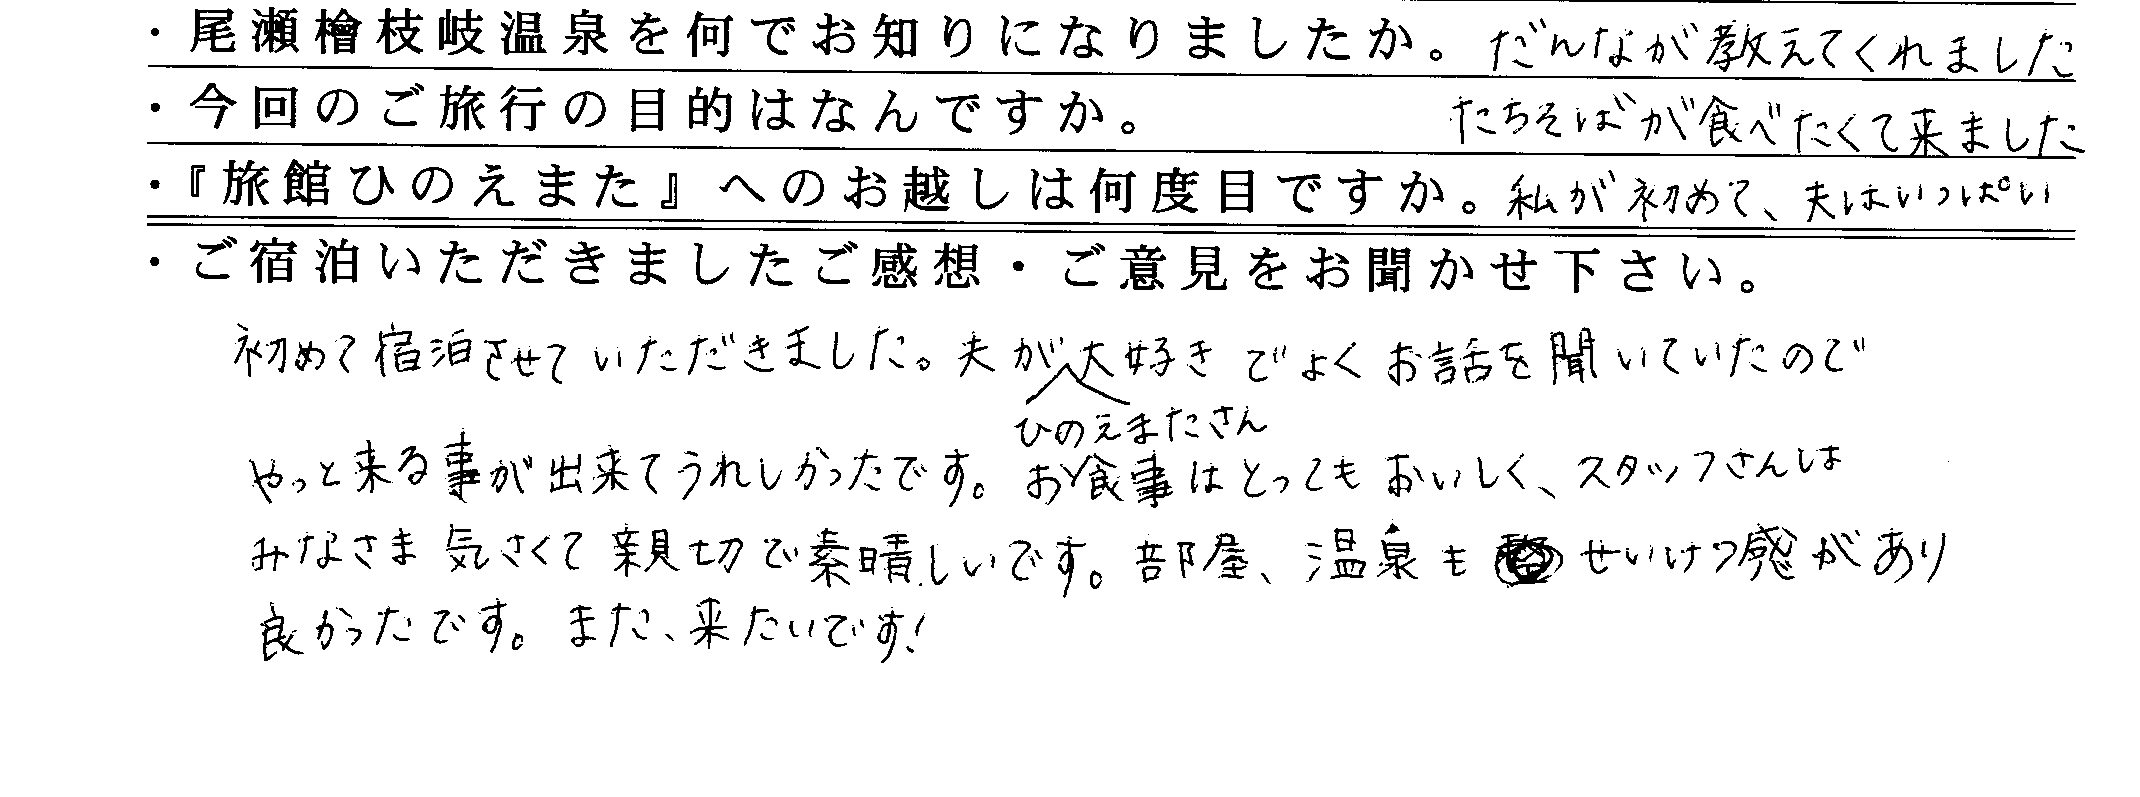 ・尾瀬檜枝岐温泉を何でお知りになりましたか。だんなが教えてくれました
・今回のご旅行の目的はなんですか。 たちそばが食べたくて来ました
・『旅館ひのえまた』へのお越しは何度目ですか。私が初めて、夫はいっぱい
・ご宿泊いただきましたご感想・ご意見をお聞かせ下さい。
初めて宿泊させていただきました。夫が大好きでよくお話を聞いていたので
ひのえまたさん
やっと来る事が出来てうれしかったです。お食事はとってもおいしく、スタッフさんは
みなさま気さくて親切で素晴しいです。部屋、温泉もせいけつ感があり
良かったです。また、来たいです!